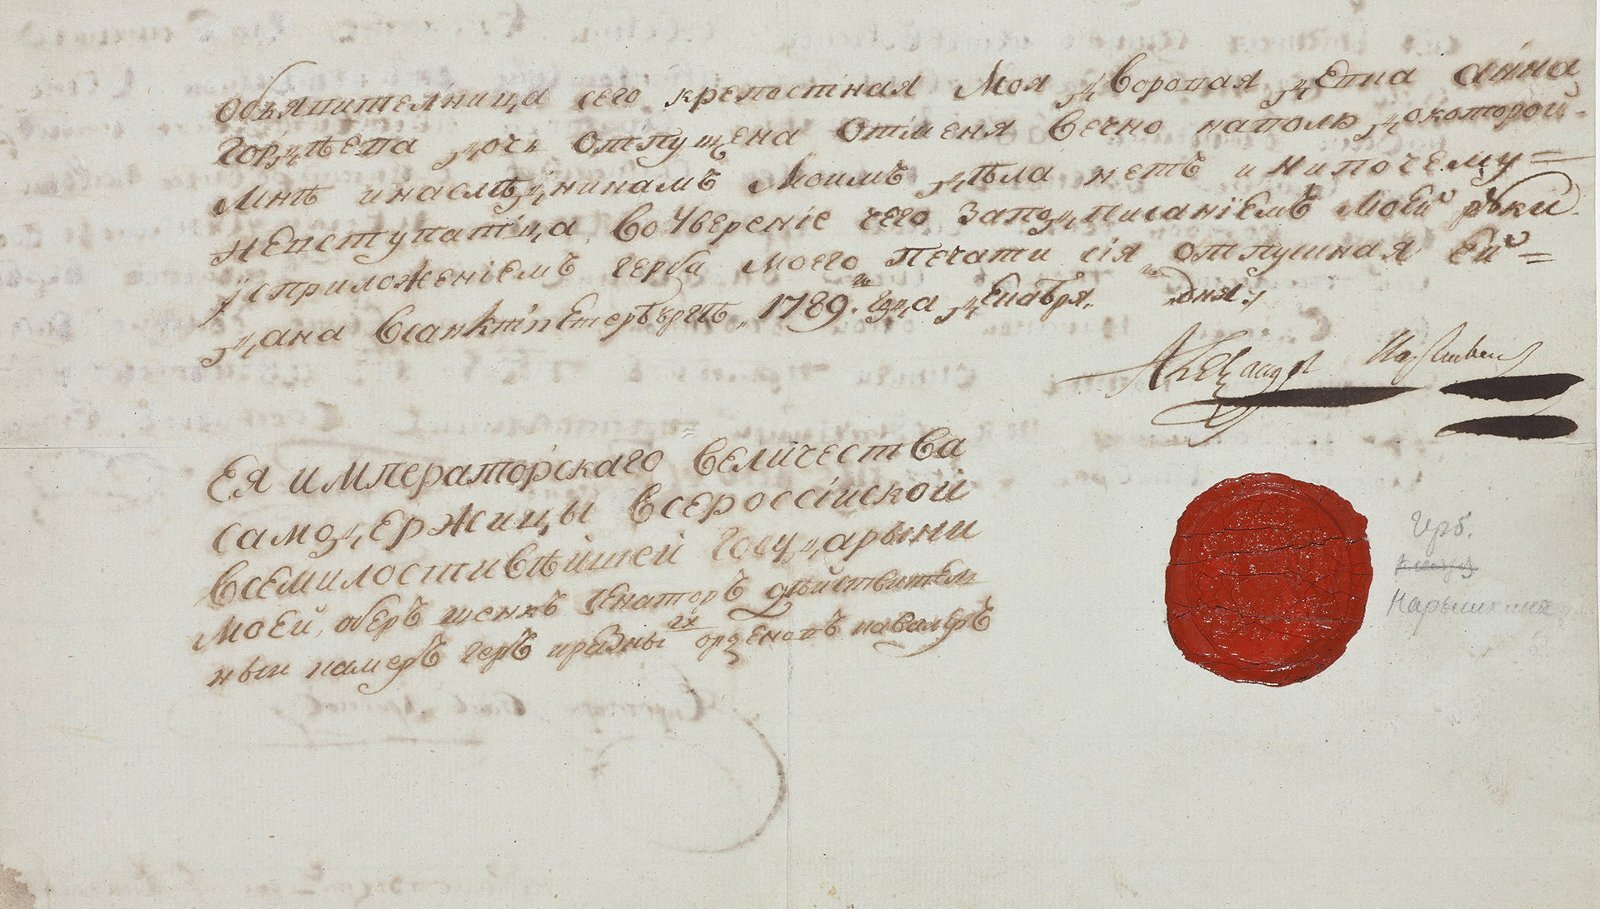 объявителница сего крепостная моя дворовая девка анна
гордѣева дочь отпущена отменя вечно наволю докоторой
мнѣ инаслѣдникамъ моимъ дѣла нетъ и нипочему
невступатца, воувереніе чего заподписаніемъ моей руки
исприложеніемъ герба моего печати сія отпускная ей
дана всанктпетербургѣ 1789 го года декабря дня
Александръ Нарышкинъ
ея императорскаго величества
самодержицы всероссійской
всемилостивѣйшей государыни
моей, оберъ шенкъ сенаторъ дѣйствител
ныи камеръ геръ иразны хъ орденовъ кавалеръ
Герб.
Нарышкина